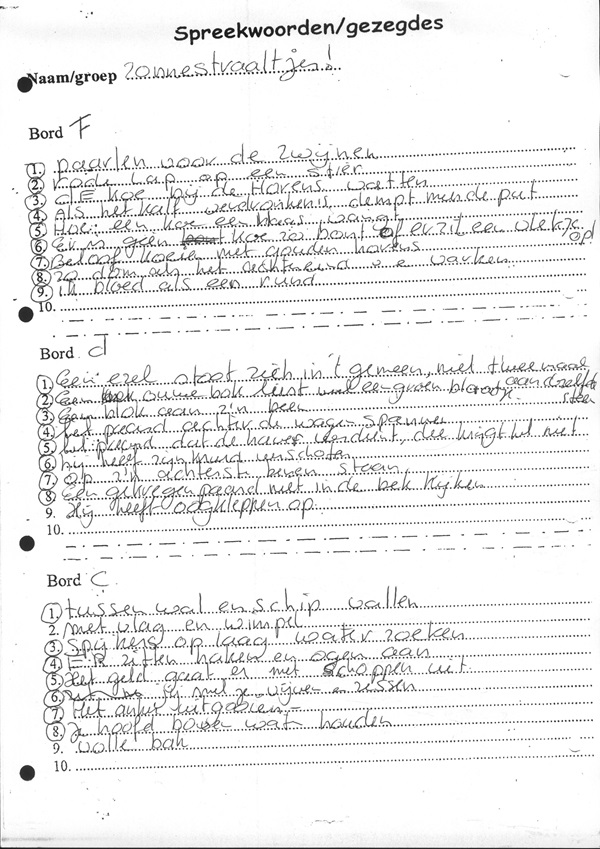 Spreekwoorden/gezegdes
Naam/groep zonnestraaltjes!
Bord F
1. paarlen voor de zwijnen
2. rode lap op een stier
3. de koe bij de Horens vatten
4. Als het kalf verdronken is, dempt men de put
5. Hoe een koe een haas vangt
6. Er is geen koe zo bont of er zit een vlekje op
7. Beloof koeien met gouden horens
8. zo dom als het achtereind v e varken
9. ik bloed als een rund
10.
Bord d
1. Een ezel stoot zich in 't gemeen, niet twee maal aan dezelfde steen
2. Een ouwe bok lust wel een groen blaadje
3. Een blok aan z'n been
4. het paard achter de wagen spannen
5. het paard dat de haver verdient, die krijgt hul niet
6. hij heeft zijn kruid verschoten
7. op z'n achterste benen staan
8. Een gekregen paard niet in de bek kijken
9. Hij heeft oogkleppen op
10.
Bord C
1. tussen wal en schip vallen
2. met vlag en wimpel
3. spijkers op laag water zoeken
4. ER zitten haken en ogen aan
5. Het geld gaat er met schoppen uit
6. bij met ze vijven en zessen
7. Het anker uitgooien
8. Je hoofd boven water houden
9. volle bak
10.